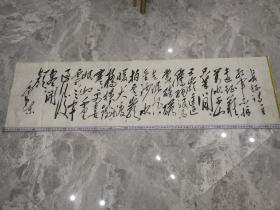 长征诗一首
红军不怕
远征难
万水千山
只等闲
五岭逶迤
腾细浪
乌蒙磅礴
走泥丸
金沙水
拍云崖
暖大渡
桥横铁索
寒更喜
岷山千里
雪三军
过后
尽开
颜
毛泽东